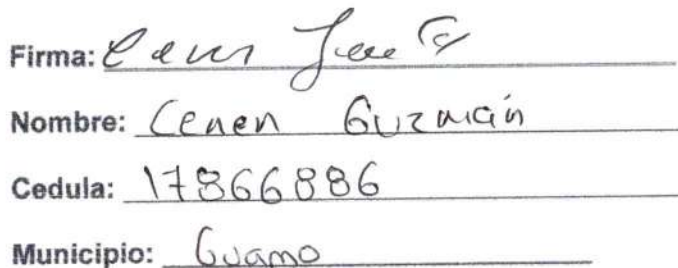 Firma:
Nombre: Cenen Guzmán
Cedula: 17866886
Municipio: Guamo